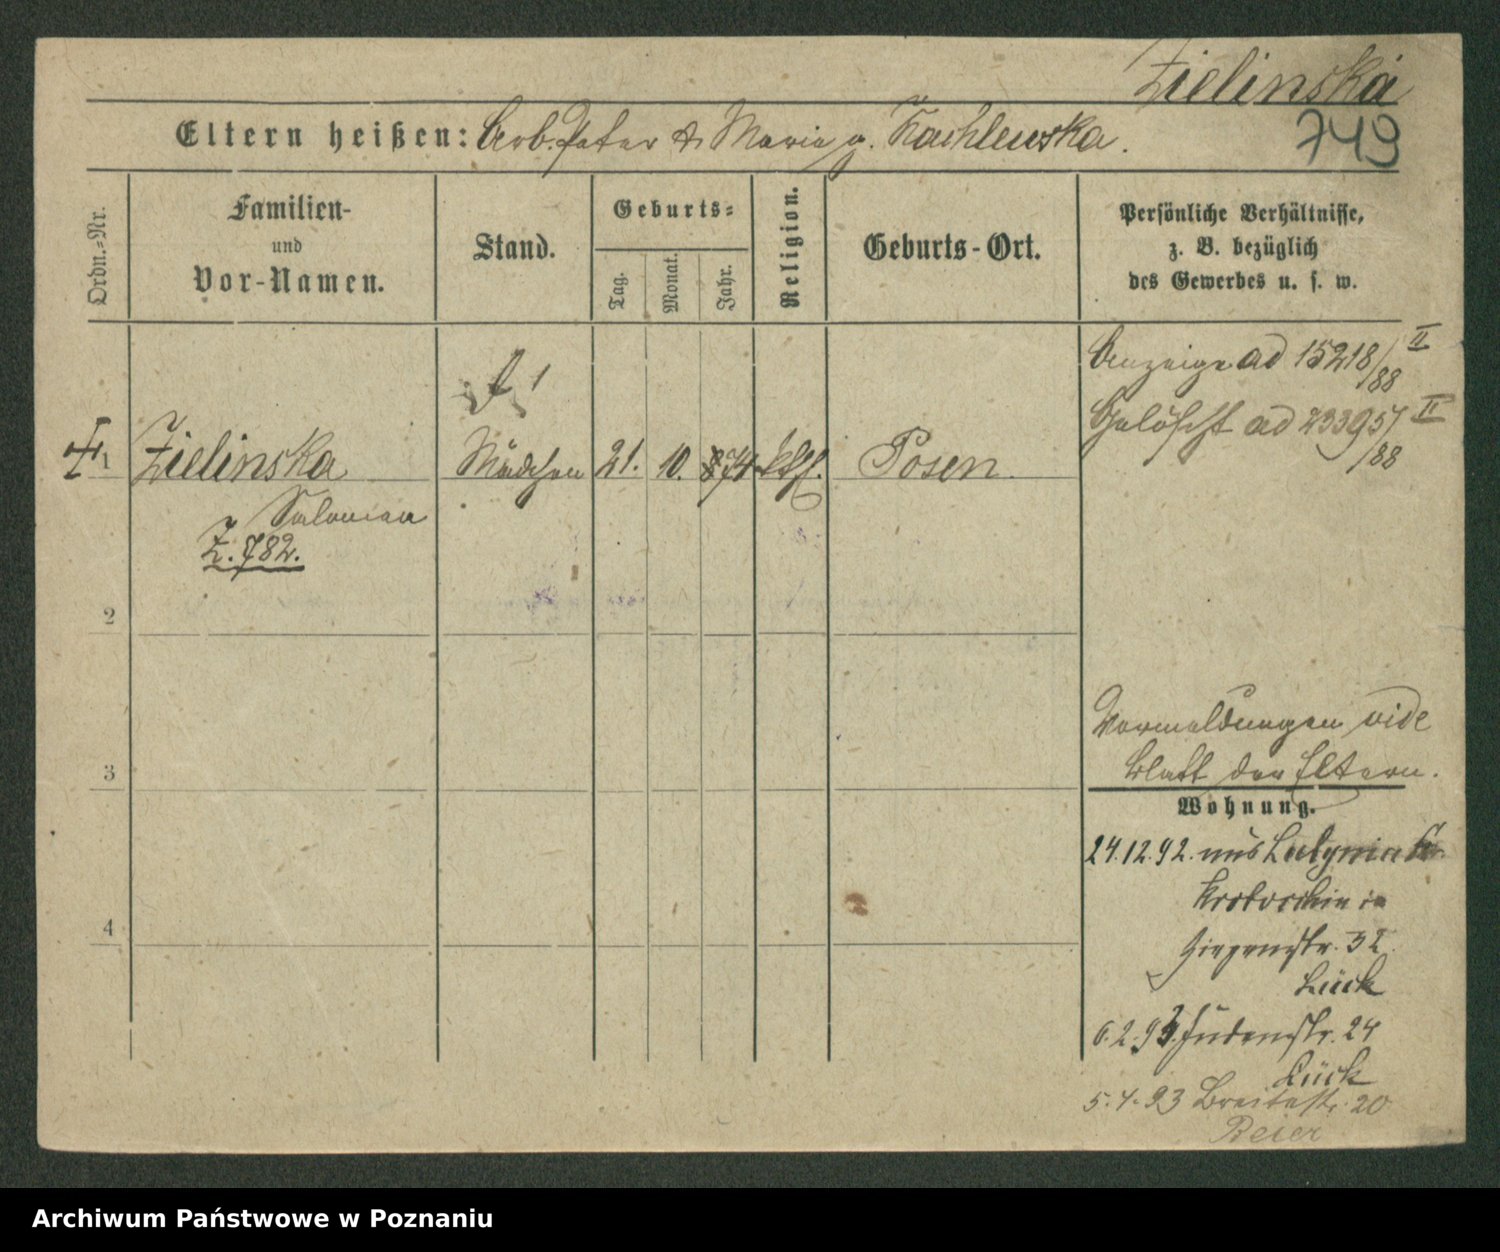 Zielinska
749
Eltern heißen: Arb. Peter & Maria g. Kachlewska.
Ordn.-Nr.
Familien-
und
Vor-Namen.
Stand.
Geburts-
Tag.
Monat.
Jahr.
Religion.
Geburts-Ort.
Persönliche Verhältnisse,
z. B. bezüglich
des Gewerbes u. s. w.
Anzeige ad 15218/88 II
Gelöscht ad 23395/88 II
1 Zielinska Mädchen 21. 10. 74 kth. Posen
Salomea
Z. 782.
2
3
4
Vormeldungen vide
Blatt der Eltern.
Wohnung.
24.12.92. aus
Krotoschin in
32
Lück
6.2.93. Judenstr. 24
Lück
5.4.93 Breitestr. 20
Beier
Archiwum Państwowe w Poznaniu